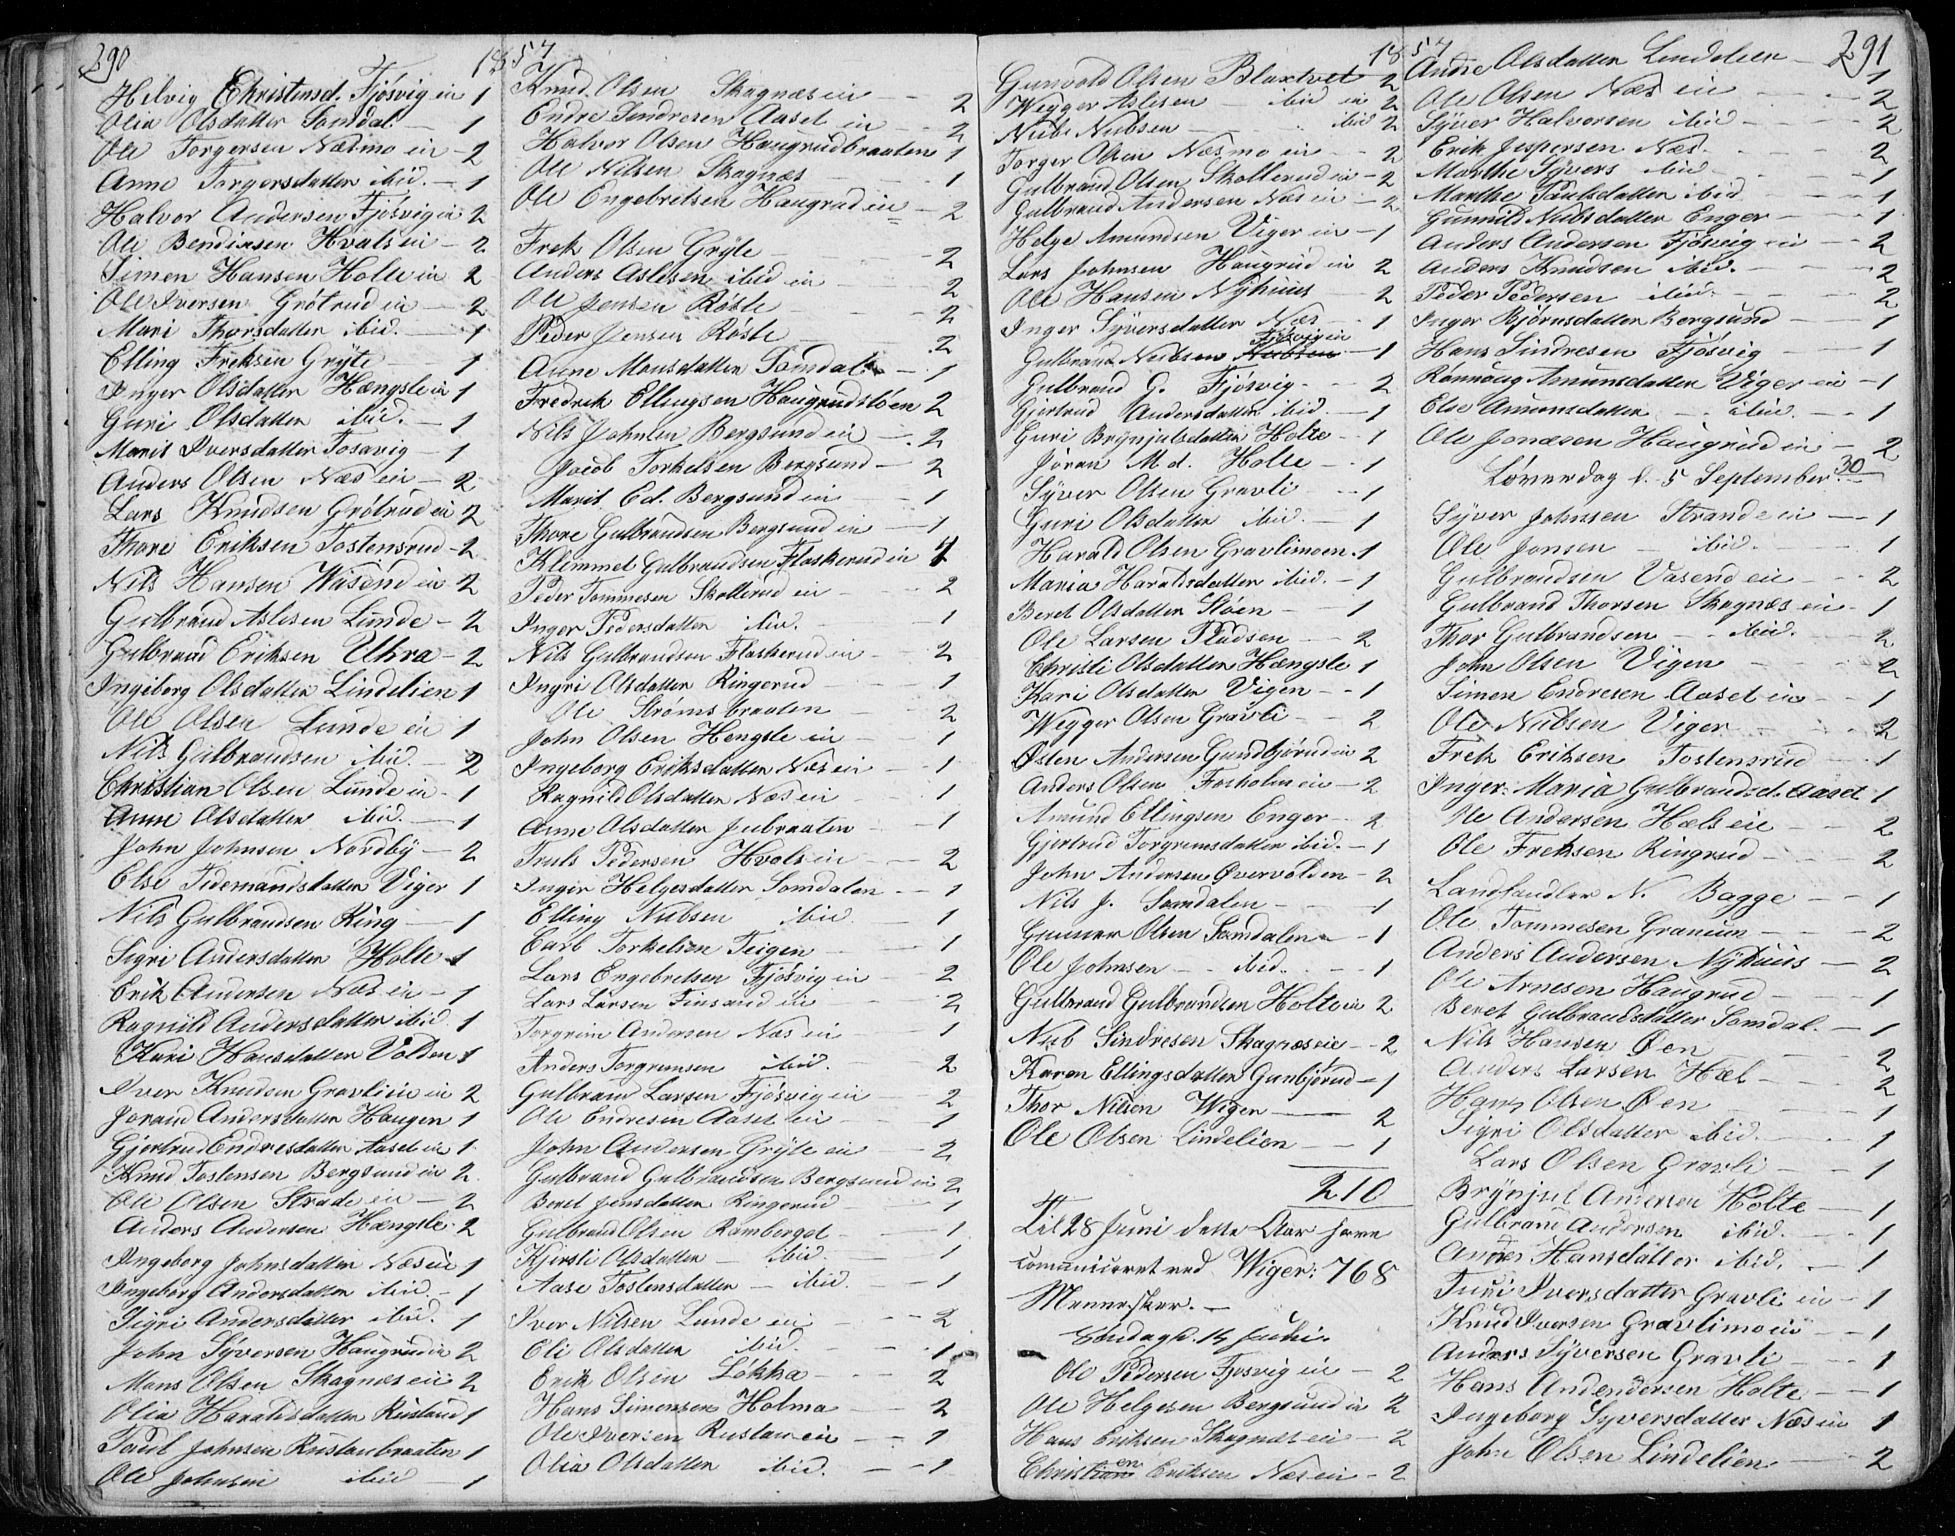 290
1857
Helvig Christensd. Fjösvig ei 1
Olia Olsdatter Somdal. — 1
Ole Torgersen Næsmo ei — 2
Anne Torgersdatter ibid. — 1
Halvor Andersen Fjösvig ei 2
Ole Bendixsen Hvals ei — 2
Simen Hansen Holte ei 2
Ole Iversen Grötrud ei — 2
Mari Thorsdatter ibid. — 1
Elling Frehsen Gryte — 1
Inger Olsdatter Hængsle ei 1
Guri Olsdatter ibid. — 1
Marit Iversdatter Fosavig — 1
Anders Olsen Næs ei — 2
Lars Knudsen Grötrud ei 2
Thore Eriksen Tostensrud — 2
Nils Hansen Wasend ei 2
Gulbrand Aslesen Lunde — 2
Gulbrand Eriksen Uhra — 2
Ingeborg Olsdatter Lindelien 1
Ole Olsen Lunde ei 1
Nils Gulbrandsen ibid. — 2
Christian Olsen Lunde ei — 1
Anne Olsdatter ibid. — 1
John Johnsen Nordby — 2
Else Tidemandsdatter Viger 1
Nils Gulbrandsen Ring — 1
Sigri Andersdatter Holte 1
Erik Andersen Næs ei — 1
Ragnild Andersdatter ibid 1
Kari Hansdatter Volden 1
Iver Knudsen Gravlien ei 2
Jorand Andersdatter Haugen 1
Gjertrud Endresdatter Aaset ei 1
Knud Tostensen Bergsund ei 2
Ole Olsen Strade ei — 2
Anders Andersen Hængsle 2
Ingeborg Johnsdatter Næs ei 1
Ingeborg Andersdatter ibid. — 1
Sigri Andersdatter ibid. 1
John Syversen Haugrud ei 2
Mons Olsen Skagnæs ei 2
Olia Haraldsdatter Rustand 1
Paul Johnsen Rustanbraaten 1
Ole Johnsen ibid — 1
Knud Olsen Skagnæs ei — 2
Endre Sindresen Aaset ei — 2
Halvor Olsen Haugrudbraaten 1
Ole Nilsen Skagnæs — 1
Ole Engebretsen Haugrud ei — 2
Freh Olsen Gryte — 2
Anders Aslesen ibid ei — 2
Ole Jensen Roste — 2
Peder Jensen Roste — 2
Anne Monsdatter Somdal — 1
Fredrik Ellingsen Haugrudstöen 2
Nils Johnsen Bergsund ei — 2
Jacob Torkelsen Bergsund — 2
Marit Ed. Bergsund ei — 1
Thore Gulbrandsen Bergsund ei — 1
Klemmet Gulbrandsen Flaskerud ei 1
Peder Tommesen Skollerud ei — 2
Inger Pedersdatter ibid. — 1
Nils Gulbrandsen Flaskerud ei — 2
Ingri Olsdatter Ringerud — 1
Ole Strömsbraaten — 2
John Olsen Hengsle ei — 1
Ingeborg Eriksdatter Næs ei — 1
Ragnild Olsdatter Næs ei — 1
Anne Olsdatter Jubraaten — 1
Truls Pedersen Hvols ei — 2
Inger Helgesdatter Somdalen — 1
Elling Nubsen ibid. — 1
Carl Torkelsen Teigen — 1
Lars Engebretsen Fjösvig ei — 2
Lars Larsen Finsand ei — 2
Torgrim Andersen Næs ei — 1
Anders Torgrimsen ibid. 2
Gulbrand Larsen Fjösvig ei — 2
Ole Endresen Aaset ei — 1
John Andersen Gryte ei — 2
Gulbrand Gulbrandsen Bergsund ei 2
Beret Jensdatter Ringerud — 1
Gulbrand Olsen Ramberget — 1
Kjersti Olsdatter — ibid — 1
Aase Tostensdatter — ibid. — 1
Iver Nilsen Lunde ei — 2
Oli Olsdatter ibid. — 1
Erik Olsen Lökka — 2
Hans Simensen Holma — 2
Ole Iversen Rustan ei — 1
Olia Olsdatter ibid. — 1
1857
291
Gunvold Olsen Blaxtvet 2
Weyger Aslesen — ibid ei 2
Nub Nubsen — ibid 2
Torger Olsen Næsmo ei — 2
Gulbrand Olsen Skollerud ei — 2
Gulbrand Andersen Næs ei — 2
Helge Amundsen Viger ei — 1
Lars Johnsen Haugrud ei 2
Ole Hansen Nyhuus — 2
Inger Syversdatter Næs — 1
Fjösvig ei
Gulbrand Nubsen Nubsen — 1
Gulbrand G. Fjösvig — 2
Gjertrud Andersdatter ibid. — 1
Guri Brynjulsdatter Holte — 1
Jöran M d. Holte — 1
Syver Olsen Gravli — 1
Guri Olsdatter ibid. — 1
Harald Olsen Gravlimoen 1
Maria Haraldsdatter ibid. — 1
Beret Olsdatter Stöen — 1
Ole Larsen Pladsen — 2
Christi Olsdatter Hængsle 1
Kari Olsdatter Vigen — 1
Weyger Olsen Gravli — 2
Østen Andersen Gunbjörud ei 2
Anders Olsen Forholm ei — 2
Amund Ellingsen Enger — 2
Gjertrud Torgrimsdatter ibid. — 1
John Andersen Øvervolden — 2
Nils J. Somdalen — 1
Gunner Olsen Somdalen — 1
Ole Johnsen — ibid. — 1
Gulbrand Gulbrandsen Holte ei 2
Nub Sindresen Skagnæs ei — 2
Karen Ellingsdatter Gunbjörud — 1
Thor Nilsen Wiger — 2
Ole Olsen Lindelien — 1
210
Til 28 Juni dette Aar have
comuniceret ved Wiger: 768
Mennesker. —
Söndag d. 14 Juni.
Ole Pedersen Fjösvig ei — 2
Ole Helgesen Bergsund ei 2
Hans Eriksen Skagnæs ei — 2
Christian Eriksen Næs ei — 2
Andre Olsdatter Lindelien — 1
Ole Olsen Næs ei — 2
Syver Halvorsen ibid — 2
Erik Jespersen Næs — 2
Marthe Syvers ibid — 1
Marthe Paulsdatter ibid — 1
Gunnild Nubsdatter Enger — 1
Anders Andersen Fjösvig ei — 2
Anders Knudsen ibid. — 2
Peder Pedersen ibid. — 2
Inger Bjørnsdatter Bergsund — 1
Hans Sindresen Fjösvig — 1
Rannaug Amunsdatter Viger ei — 1
Else Amonsdatter — ibid. — 1
Ole Jonasen Haugrud ei — 2
30
Löverdag d. 5 September.
Syver Johnsen Strande ei — 1
Ole Jonsen — ibid. — 1
Gulbrandsen Vasend ei — 2
Gulbrand Thorsen Skagnæs ei — 1
Thor Gulbrandsen — ibid. 2
John Olsen Vigen — 2
Simen Endresen Aaset ei — 1
Ole Nubsen Viger — 2
Freh Eriksen Tostensrud — 1
Inger Maria Gulbrands.d. Aaset 1
Ole Andersen Hæls ei — 2
Ole Frehsen Ringrud — 2
Landhandler N. Bagge — 1
Ole Tommesen Granum — 2
Anders Andersen Nyhuus — 2
Ole Arnesen Haugrud — 1
Beret Gulbrandsdatter Somdal. — 1
Nils Hansen Øen — 2
Anders Larsen Hæl — 2
Hans Olsen Øen — 1
Sigri Olsdatter ibid. — 1
Lars Olsen Gravli — 1
Brynjul Andersen Holte — 1
Gulbrand Andersen ibid. — 1
Andes Hansdatter ibid. — 1
Turi Iversdatter Gravli ei — 1
Knud Iversen Gravlimo ei — 1
Anders Syversen Gravli — 1
Hans Andendersen Holte — 1
Ingeborg Syversdatter Næs ei 1
John Olsen Lindelien — 2